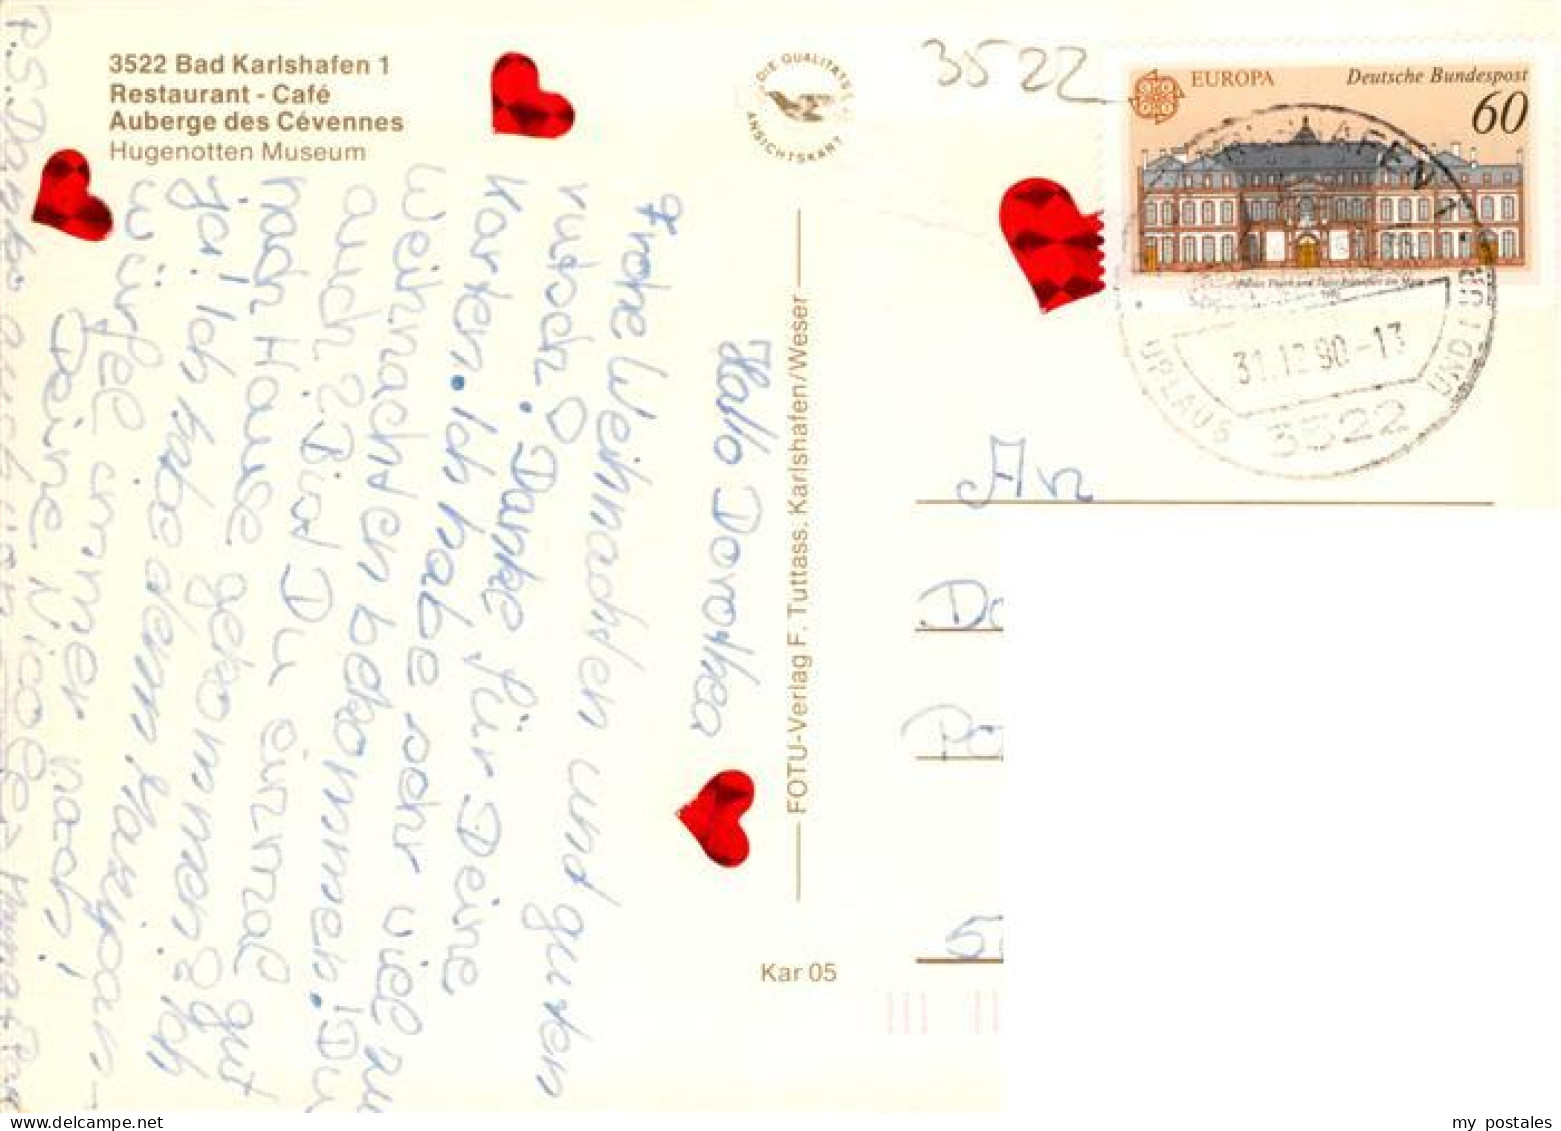 3522 Bad Karlshafen 1
Restaurant - Café
Auberge des Cévennes
Hugenotten Museum
DIE QUALITÄTS
ANSICHTSKARTE
3522
EUROPA
Deutsche Bundespost
60
31.12.90-13
URLAUBS
UND
3522
Hallo Dorothea
Frohe Weihnachten und guten
rutsch. Danke für Deine
Karten. Ich habe sehr viel zu
Weihnachten bekommen. Du
auch? Bist Du einmal
nach Hause gekommen? gut
ja! Ich habe dem Marzipan-
würfel immer noch!
Deine Nicole
P.S. Danke auch
FOTU-Verlag F. Tuttass. Karlshafen/Weser
Kar 05
An
my postales